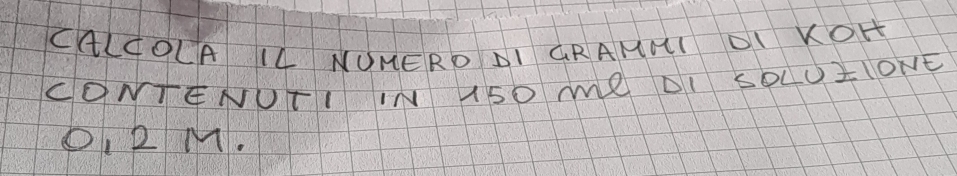 CALCOLA IL NUMERO DI GRAMMI DI KOH
CONTENUTI IN 150 ml DI SOLUZIONE
0,2 M.